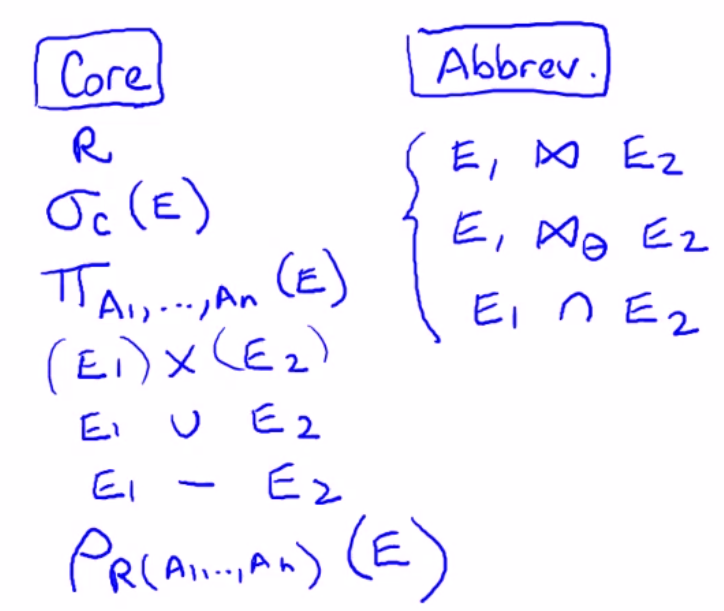 Core
R
σ_C (E)
π_{A1,...,An} (E)
(E1) × (E2)
E1 ∪ E2
E1 − E2
ρ_{R(A1,...,An)} (E)
Abbrev.
E1 ⋈ E2
E1 ⋈_θ E2
E1 ∩ E2